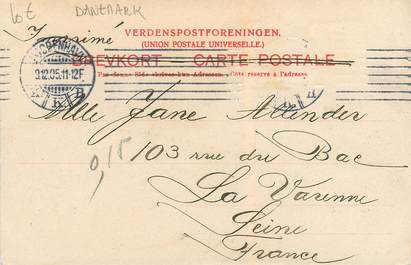 lot DANEMARK
VERDENSPOSTFORENINGEN.
(UNION POSTALE UNIVERSELLE.)
Imprimé
BREVKORT — CARTE POSTALE
Paa denne Side skrives kun Adressen. Côté réservé à l'adresse.
KJØBENHAVN
9.12.05.11-12F.
K. B
Mlle Jane Alinder
0,15
103 rue du Bac
La Varenne
Seine
France